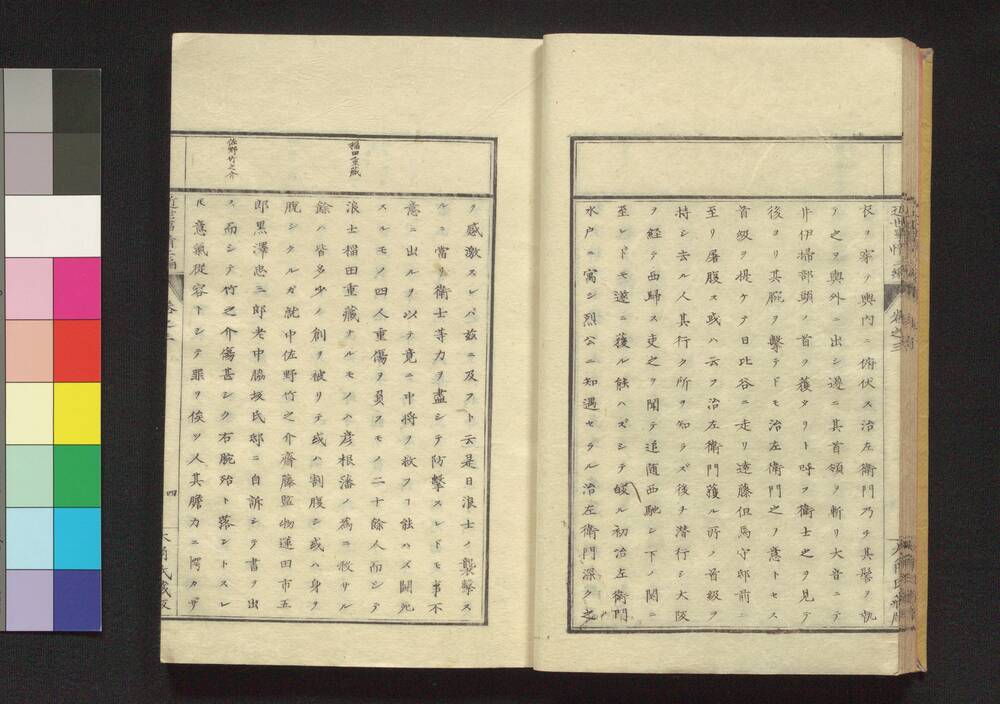 役ヲ率テ輿内ニ俯伏ス治左衛門乃チ其髻ヲ執
テ之ヲ輿外ニ出シ遂ニ其首領ヲ斬リ大音ニテ
井伊掃部頭ノ首ヲ獲タリト呼フ衛士之ヲ見テ
後ヨリ其腕ヲ撃テドモ治左衛門之ヲ意トセス
首級ヲ提ケテ日比谷ニ走リ遠藤但馬守邸前ニ
至リ屠腹ス或ハ云フ治左衛門獲ル所ノ首級ヲ
持シ去ル人其行ク所ヲ知ラズ後チ潜行シ大阪
ヲ経テ西帰ス吏之ヲ聞テ追随西馳シ下ノ関ニ
至レドモ遂ニ獲ル能ハズシテ皈ル初治左衛門
水戸ニ寓シ烈公ニ知遇セラル治左衛門深ク之
ヲ感激スレバ茲ニ及フト云是日浪士ノ襲撃ス
ルニ當リ衛士等力ヲ盡シテ防撃スレドモ事不
意ニ出ルヲ以テ竟ニ中将ヲ救フヿ能ハズ闘死
スルモノ四人重傷ヲ負スモノ二十餘人而シテ
稲田重蔵
浪士稲田重蔵ナルモノハ彦根藩ノ為ニ殺サル
餘ハ皆多少ノ創ヲ被リテ或ハ割腹シ或ハ身ヲ
脱シタルガ就中佐野竹之介齋藤監物蓮田市五
郎黒澤忠三郎老中脇坂氏邸ニ自訴シテ書ヲ出
佐野竹之介
ス而シテ竹之介傷甚シク右腕殆ト落ントスレ
ドモ意氣従容トシテ罪ヲ俟ツ人其膽力ニ愕カザ
四